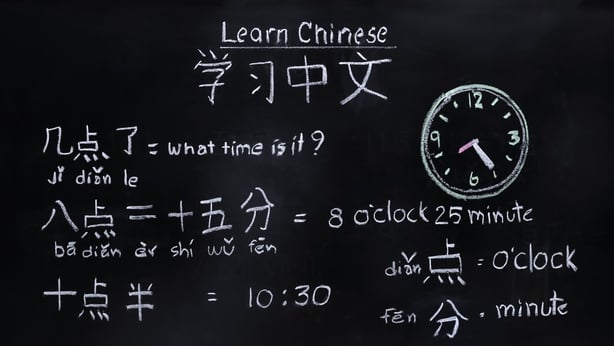 Learn Chinese
学习中文
12
9 3
6
几点了 = what time is it?
jǐ diǎn le
八点二十五分 = 8 o'clock 25 minute
bā diǎn èr shí wǔ fēn
diǎn 点 = o'clock
十点半 = 10:30
fēn 分 = minute